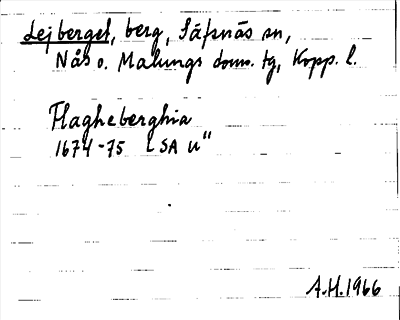 Lejberget, berg, Säfsnäs sn,
Nås o. Malungs doms. tg, Kopp. l.
Flagheberghia
1674-75 LSA U"
A.H. 1966